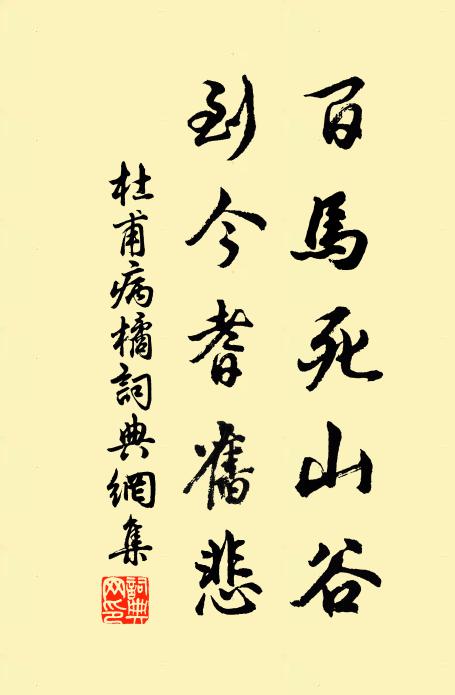 百馬死山谷
到今耆舊悲
杜甫病橘詞典網集
詞典網印